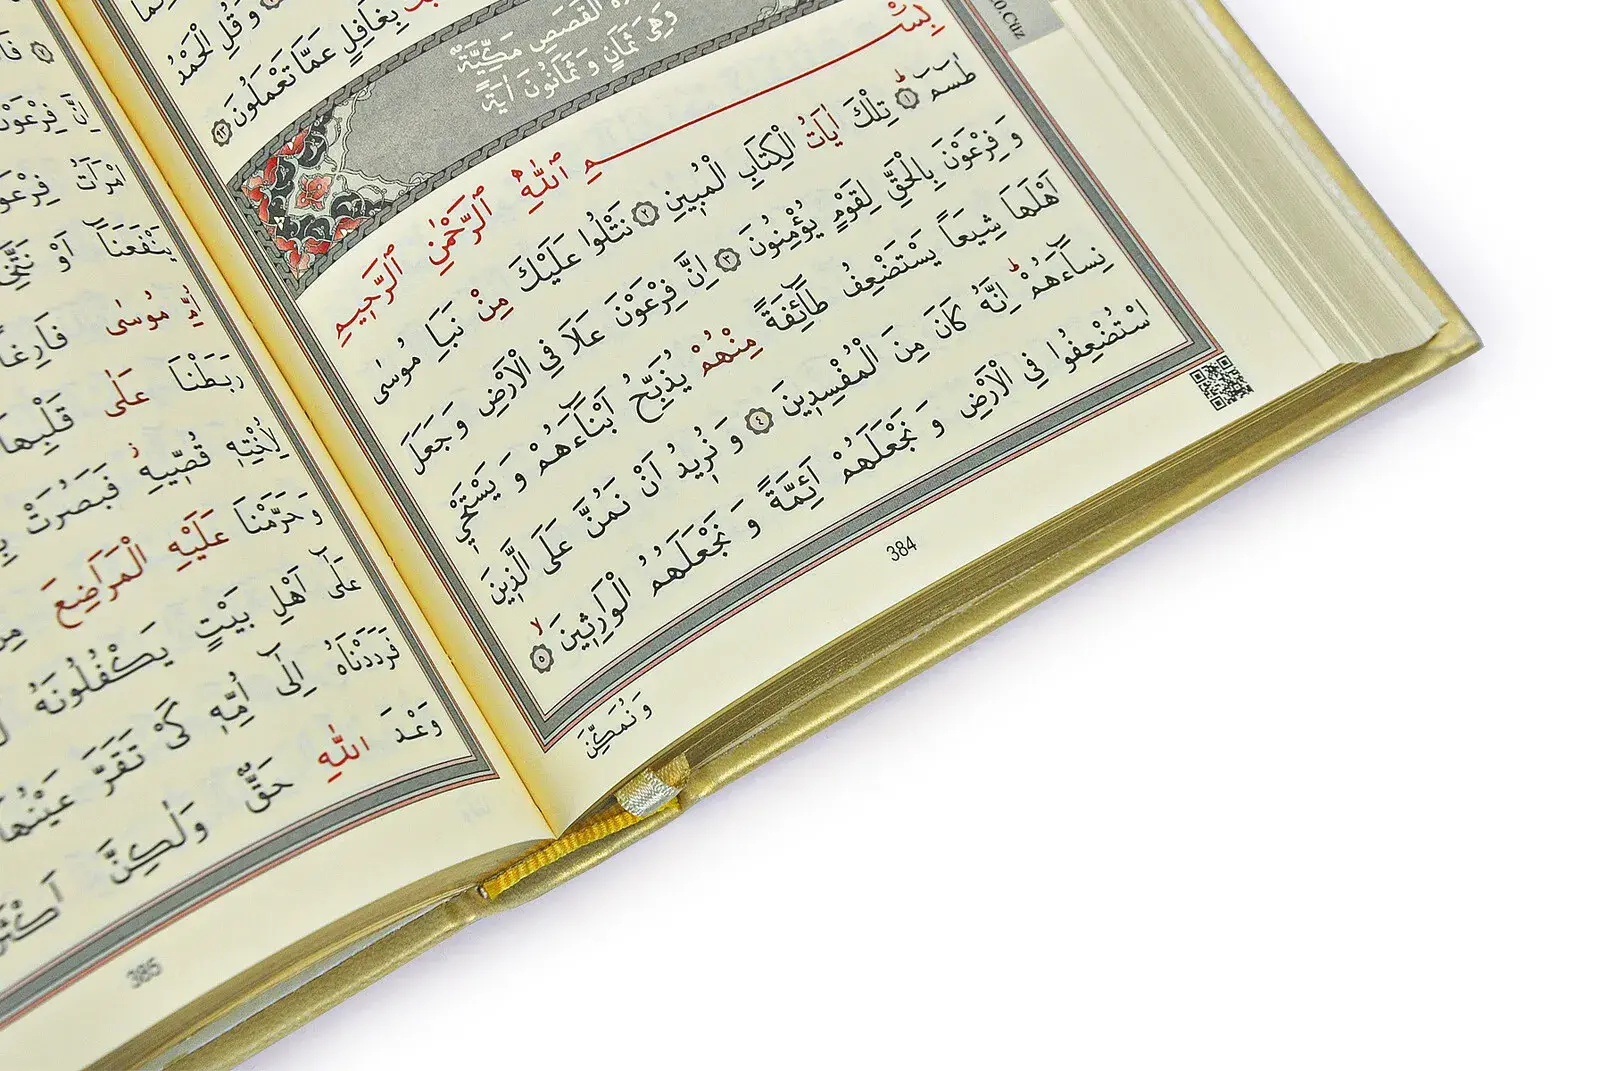 وَقُلِ الْحَمْدُ
بِغَافِلٍ عَمَّا تَعْمَلُونَ ﴿٩٣﴾
الْقَصَصِ مَكِّيَّةٌ
وَهِىَ ثَمَانٍ وَ ثَمَانُونَ اٰيَةً
20.Cüz
بِسْمِ اللّٰهِ الرَّحْمٰنِ الرَّحِيمِ
طٰسٓمٓ ﴿١﴾ تِلْكَ اٰيَاتُ الْكِتَابِ الْمُبِينِ ﴿٢﴾ نَتْلُوا عَلَيْكَ مِنْ نَبَاِ مُوسٰى
وَ فِرْعَوْنَ بِالْحَقِّ لِقَوْمٍ يُؤْمِنُونَ ﴿٣﴾ اِنَّ فِرْعَوْنَ عَلَا فِي الْاَرْضِ وَ جَعَلَ
اَهْلَهَا شِيَعاً يَسْتَضْعِفُ طَٓائِفَةً مِنْهُمْ يُذَبِّحُ اَبْنَٓاءَهُمْ وَ يَسْتَحْيٖ
نِسَٓاءَهُمْ اِنَّهُ كَانَ مِنَ الْمُفْسِدِينَ ﴿٤﴾ وَ نُرِيدُ اَنْ نَمُنَّ عَلَى الَّذِينَ
اسْتُضْعِفُوا فِي الْاَرْضِ وَ نَجْعَلَهُمْ اَئِمَّةً وَ نَجْعَلَهُمُ الْوَارِثِينَ ﴿٥﴾
وَ نُمَكِّنَ
384
اِنَّ فِرْعَوْنَ
امْرَاَتُ فِرْعَوْنَ
يَنْفَعَنَٓا اَوْ نَتَّخِذَهُ
اُمِّ مُوسٰى فَارِغاً
رَبَطْنَا عَلٰى قَلْبِهَا
لِاُخْتِهٖ قُصِّيهِ فَبَصُرَتْ
وَ حَرَّمْنَا عَلَيْهِ الْمَرَاضِعَ
عَلٰٓى اَهْلِ بَيْتٍ يَكْفُلُونَهُ
فَرَدَدْنَاهُ اِلٰٓى اُمِّهٖ كَىْ تَقَرَّ عَيْنُهَا
وَعْدَ اللّٰهِ حَقٌّ وَلٰكِنَّ اَكْثَرَ
385